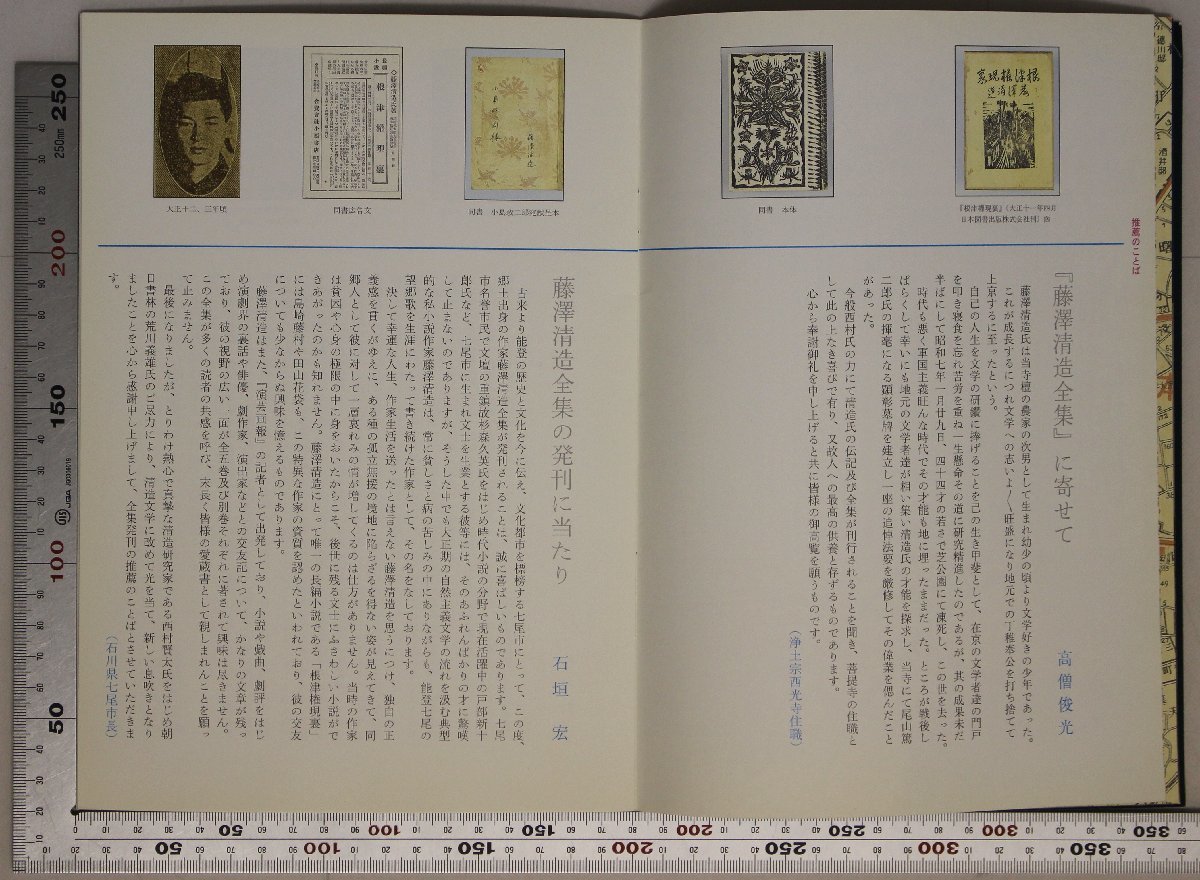 推薦のことば
『根津権現裏』（大正十一年四月
日本図書出版株式会社刊）函
同書　本体
同書　広告文
大正十二、三年頃
『藤澤清造全集』に寄せて
高僧俊光
藤澤清造氏は当寺檀の農家の次男として生まれ幼少の頃より文学好きの少年であった。
これが成長するにつれ文学への志いよ〱旺盛になり地元での丁稚奉公を打ち捨てて
上京するに至ったという。
自己の人生を文学の研鑽に捧げることを己の生き甲斐として、在京の文学者達の門戸
を叩き寝食を忘れ苦労を重ね一生懸命その道に研究精進したのであるが、其の成果未だ
半ばにして昭和七年一月廿九日、四十四才の若さで芝公園にて凍死し、この世を去った。
時代も悪く軍国主義旺んな時代でその才能も地に埋ったままだった。ところが戦後し
ばらくして幸いにも地元の文学者達が相い集い清造氏の才能を探求し、当寺にて尾山篤
二郎氏の揮毫になる顕彰墓碑を建立し一座の追悼法要を厳修してその偉業を偲んだこと
があった。
今般西村氏の力にて清造氏の伝記及び全集が刊行されることを聞き、菩提寺の住職と
して此の上なき喜びで有り、又故人への最高の供養と存ずるものであります。
心から奉謝御礼を申し上げると共に皆様の御高覧を願うものです。
（浄土宗西光寺住職）
藤澤清造全集の発刊に当たり
石垣　宏
古来より能登の歴史と文化を今に伝え、文化都市を標榜する七尾市にとって、この度、
郷土出身の作家藤澤清造全集が発刊されることは、誠に喜ばしいものであります。七尾
市名誉市民で文壇の重鎮故杉森久英氏をはじめ時代小説の分野で現在活躍中の戸部新十
郎氏など、七尾市に生まれ文士を生業とする彼等には、そのあふれんばかりの才に驚嘆
して止まないのでありますが、そうした中でも大正期の自然主義文学の流れを汲む典型
的な私小説作家藤澤清造は、常に貧しさと病の苦しみの中にありながらも、能登七尾の
望郷歌を生涯にわたって書き続けた作家として、その名をなしております。
決して幸運な人生、作家生活を送ったとは言えない藤澤清造を思うにつけ、独自の正
義感を貫くがゆえに、ある種の孤立無援の境地に陥らざるを得ない姿が見えてきて、同
郷人として彼に対して一層哀れみの情が増してくるのは仕方がありません。当時の作家
は貧困や心身の極限の中に身をおいたからこそ、後世に残る文士にふさわしい小説がで
きあがったのかも知れません。藤澤清造にとって唯一の長編小説である「根津権現裏」
には島崎藤村や田山花袋も、この特異な作家の資質を認めたといわれており、彼の交友
についても少なからぬ興味を憶えるものであります。
藤澤清造はまた、『演芸画報』の記者として出発しており、小説や戯曲、劇評をはじ
め演劇界の裏話や俳優、劇作家、演出家などとの交友記について、かなりの文章が残っ
ており、彼の視野の広い一面が全五巻及び別巻それぞれに著されて興味は尽きません。
この全集が多くの読者の共感を呼び、末長く皆様の愛蔵書として親しまれんことを願っ
て止みません。
最後になりましたが、とりわけ熱心で真摯な清造研究家である西村賢太氏をはじめ朝
日書林の荒川義雄氏のご尽力により、清造文学に改めて光を当て、新しい息吹きとなり
ましたことを心から感謝申し上げまして、全集発刊の推薦のことばとさせていただきま
す。
（石川県七尾市長）